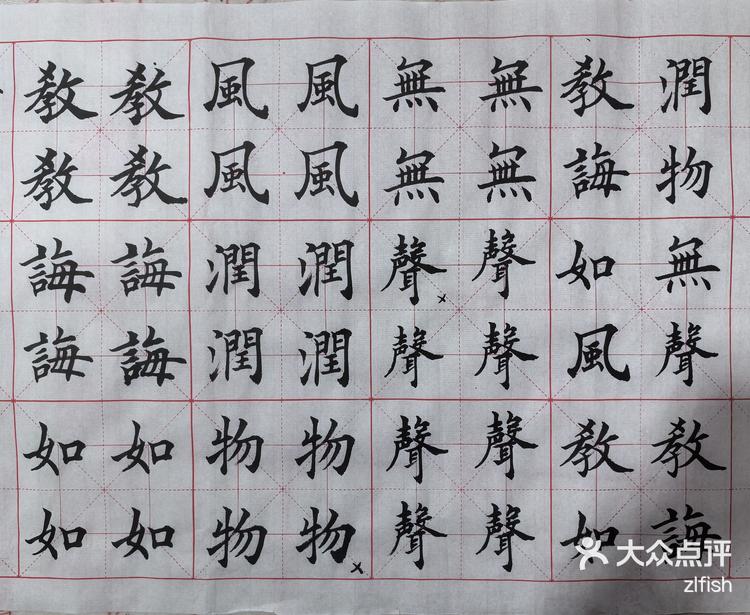 教教風風無無教潤
教教風風無無誨物
誨誨潤潤聲聲如無
誨誨潤潤聲聲風聲
如如物物聲聲教教
如如物物聲聲如誨
大众点评
zlfish